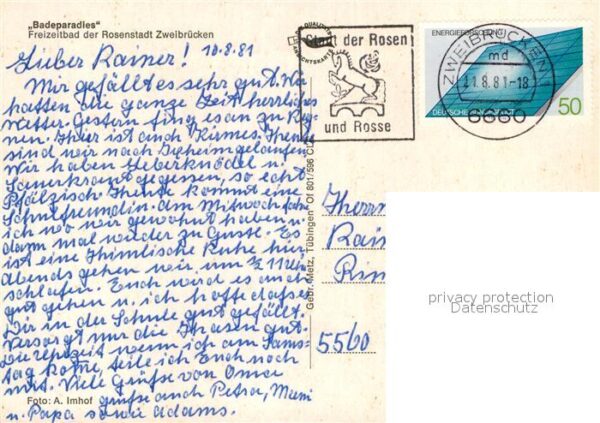 „Badeparadies"
Freizeitbad der Rosenstadt Zweibrücken
Lieber Rainer! 10.8.81
Mir gefällt es sehr gut. Wir
hatten die ganze Zeit herrliches
Wetter. Gestern fing es an zu Reg-
nen. Hier ist auch Kirmes. Heute
sind wir nach Ixheim gelaufen.
Wir haben Leberknödel u.
Sauerkraut gegessen, so echt
Pfälzisch. Heute kommt eine
Schulfreundin. am Mittwoch fahr
ich wo wir gewohnt haben u.
dann mal wieder zu Guste. Es
ist eine Himmlische Ruhe hier
Abends gehen wir um ½ 11 Uhr
schlafen. Euch wird es auch
gut gehen u. ich hoffe daß es
Dir in der Schule gut gefällt.
Versorgt nur die Hasen gut.
Die Uhrzeit wenn ich am Sams-
tag komme, teile ich Euch noch
mit. Viele Grüße von Oma
grüße auch Petra, Mami
u. Papa sowie Adams.
Foto: A. Imhof
Gebr. Metz, Tübingen
Of 801/596
Stadt der Rosen
und Rosse
ZWEIBRÜCKEN
md
11.8.81-18
6660
ENERGIEFORSCHUNG
DEUTSCHE BUNDESPOST
50
Herrn
Rain
Rin
5560
privacy protection
Datenschutz